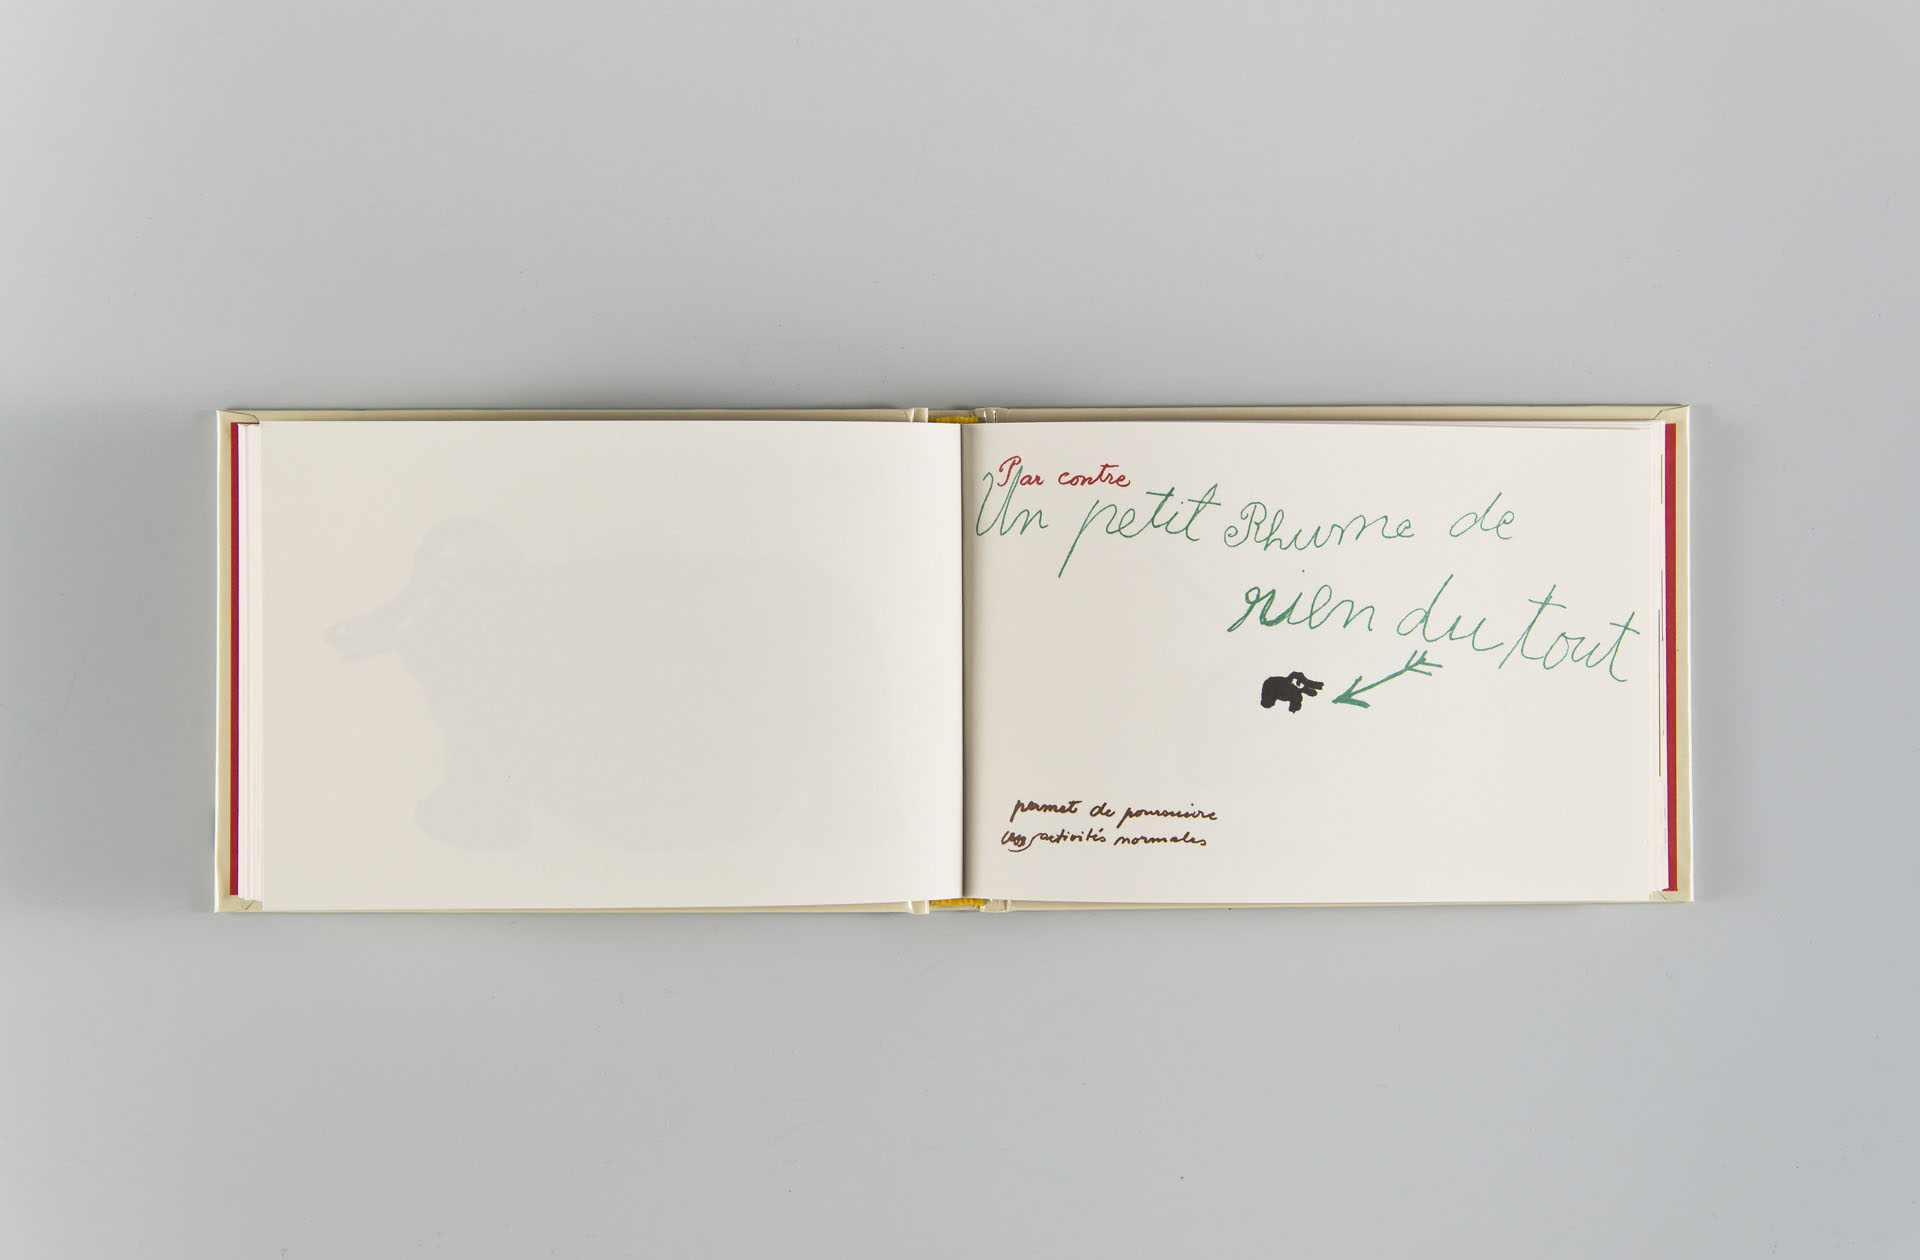 Par contre
Un petit Rhume de
rien du tout
permet de poursuivre
activités normales